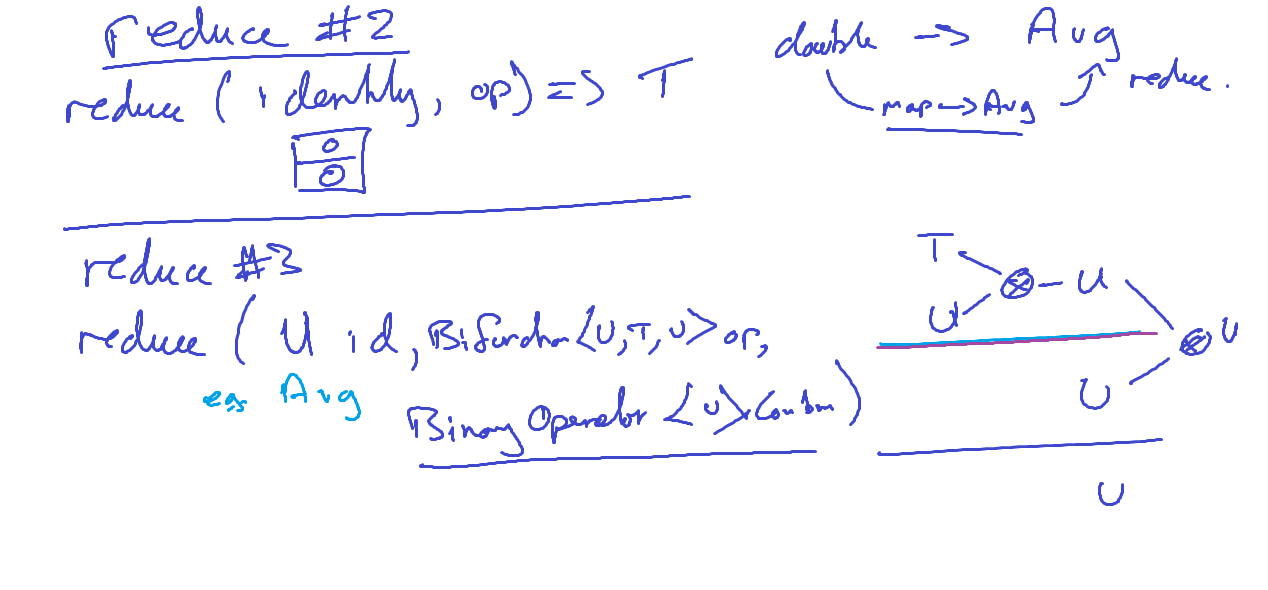 reduce #2
reduce ( identity, op) => T
0
0
double -> Avg
map -> Avg
reduce.
reduce #3
reduce ( U id, BiFunction <U,T,U> op,
eg Avg
BinaryOperator <U>
T
U
U
U
U
U